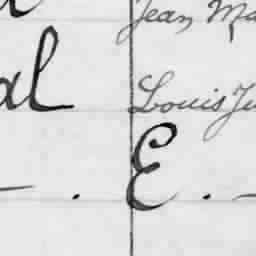 Jean Ma
al Louis Ju
— . E . —